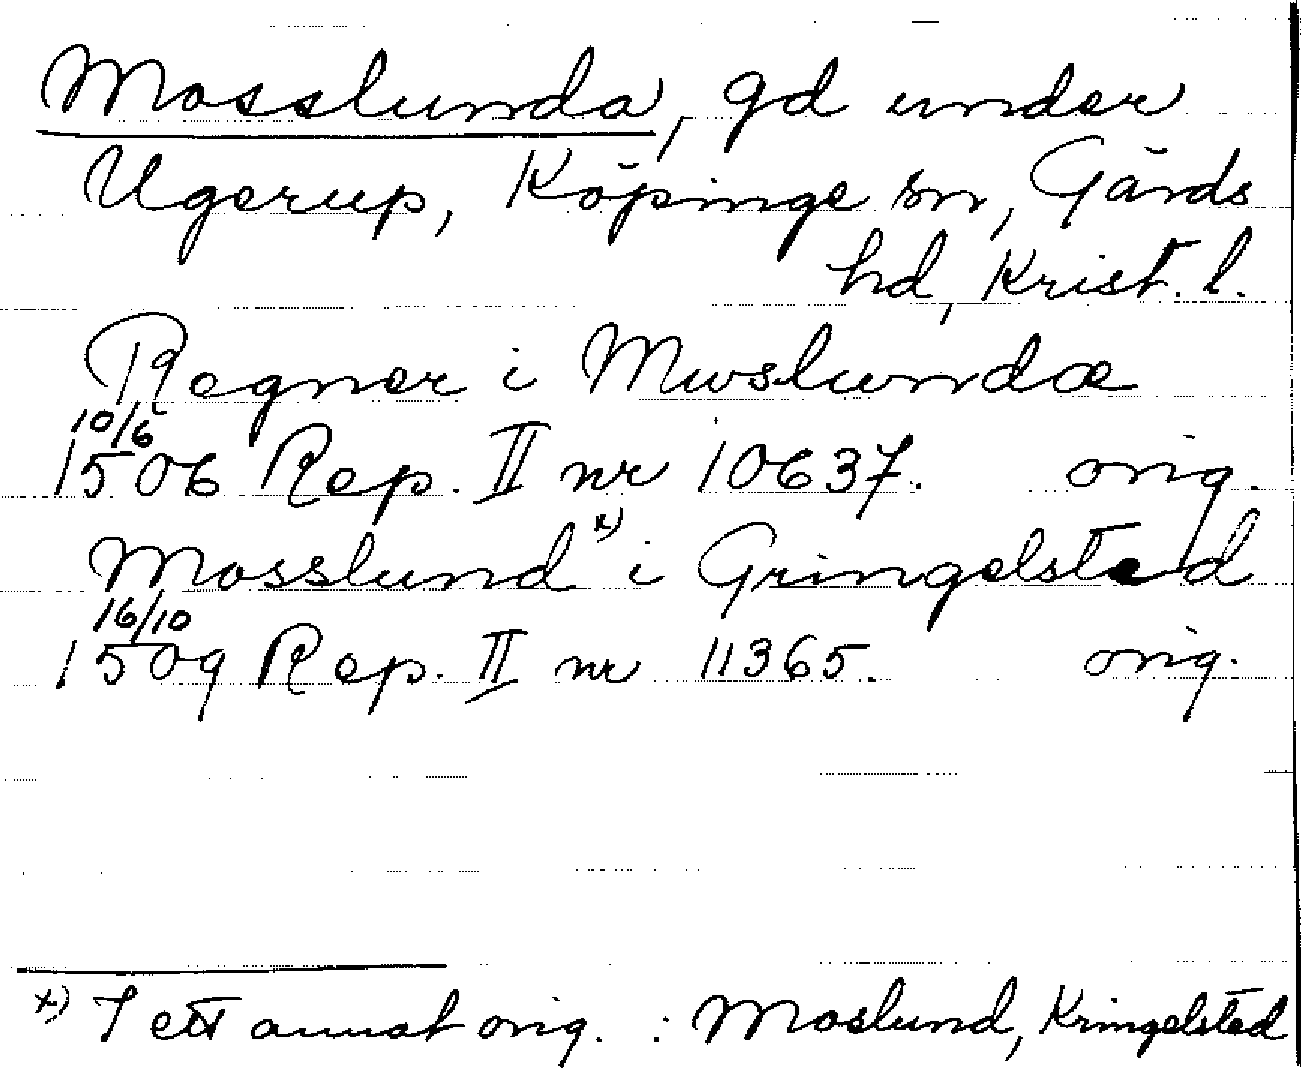 Mosslunda, gd under
Ugerup, Köpinge sn, Gärds
hd, Krist. l.
Regner i Mwslundæ
10/6
1506 Rep. II nr 10637. orig.
Mosslund x) i Gringelsted
16/10
1509 Rep. II nr 11365. orig.
x) I ett annat orig. : Moslund, Kringelsted